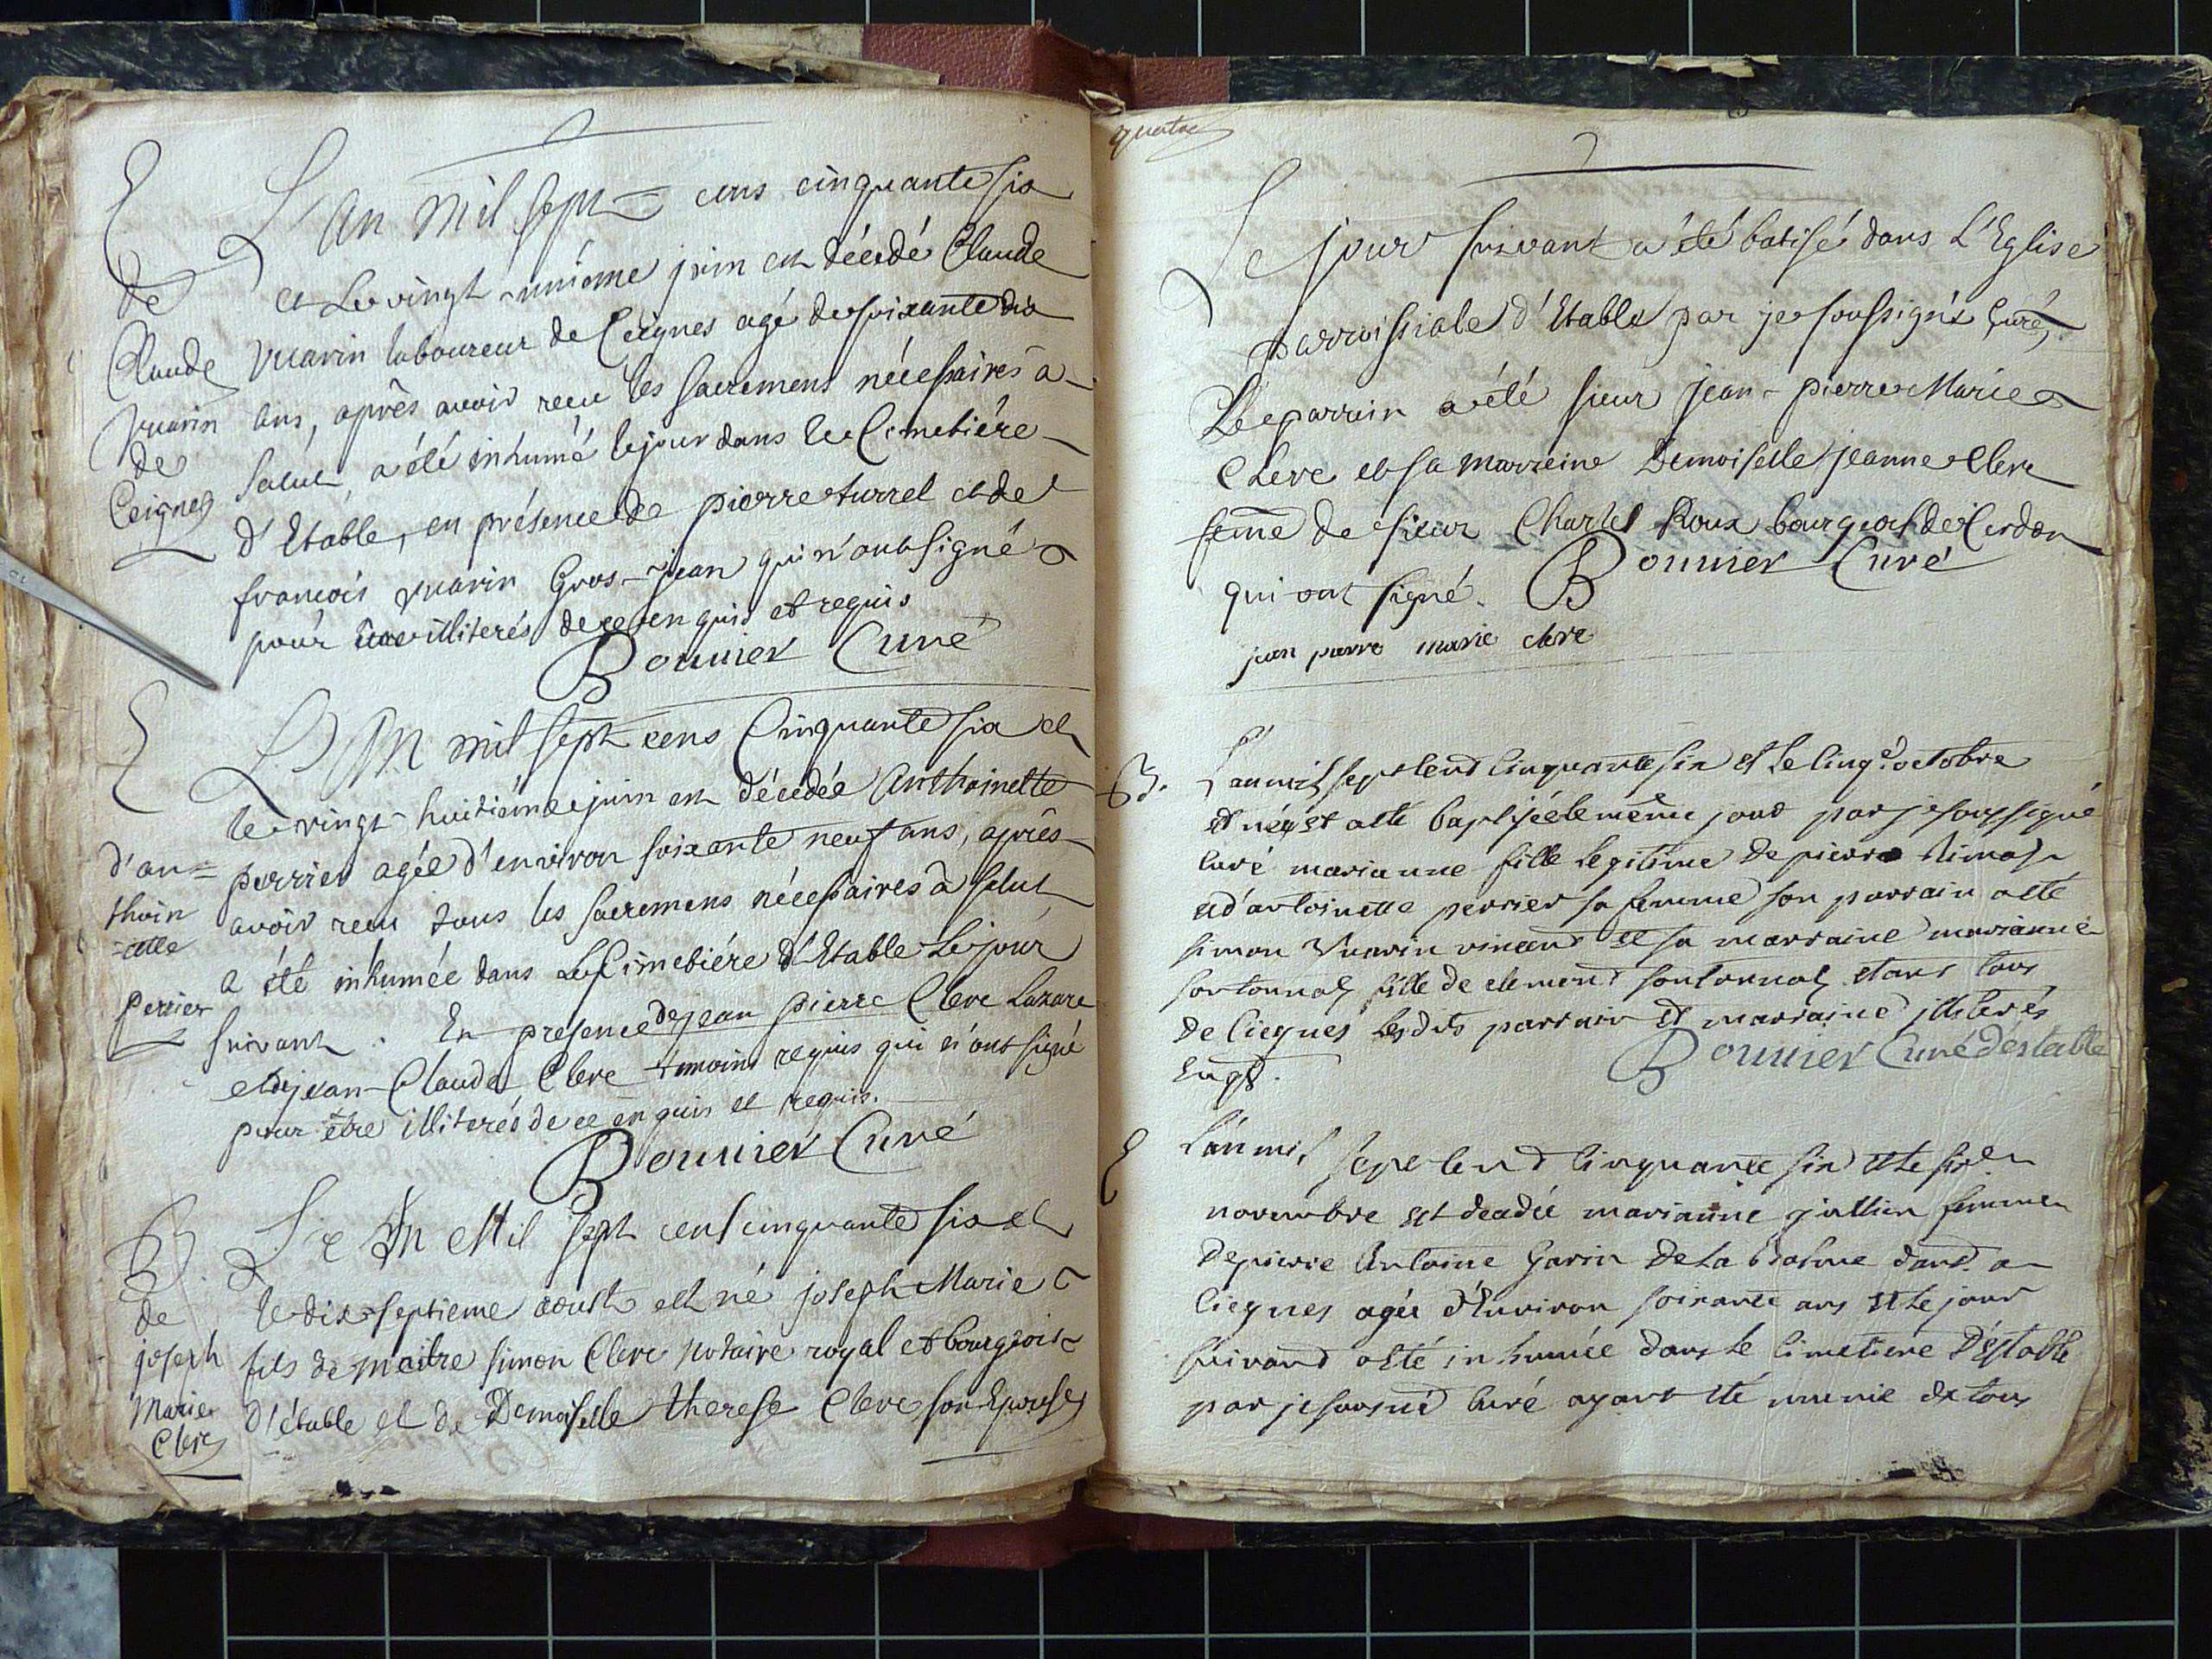 E
L'an mil sept cens cinquante six
de
et le vingt-unième juin est décédé Claude
Claude
Vuarin laboureur de Ceignes agé de soixante dix
Vuarin
ans, après avoir reçu les sacremens nécessaires à
de
salut, a été inhumé le jour dans le Cimetiére
Ceignes
d'Etable, en présence de pierre turrel et de
francois Vuarin Gros-jean qui n'ont signé
pour être illiterés de ce enquis et requis
Bouvier Curé
E
L'An mil sept cens Cinquante six et
le vingt-huitiéme juin est décédée Anthoinette
d'an=
perrier agée d'environ soixante neuf ans, après
thoin
avoir reçu tous les sacremens nécessaires à salut
=ette
a été inhumée dans Le Cimetiére d'Etable Le jour
perrier
suivant. En presence de jean pierre Clerc Lazare
et de jean-Claude Clerc temoins requis qui n'ont signé
pour être illiterés de ce enquis et requis.
Bouvier Curé
B.
Le An Mil sept cens cinquante six et
de
le dix-septieme aoust est né joseph Marie
joseph
fils de maitre simon Clerc notaire royal et bourgeois
Marie
d'étable et de Demoiselle therese Clerc son Epouse
Clerc
quatre
Le jour suivant a été batisé dans L'Eglise
parroissiale d'Etable par je soussigné Curé,
Le parrain a été sieur jean-pierre Marie
Clerc et sa marreine Demoiselle jeanne Clerc
feme de sieur Charles Roux bourgeois de Cerdon
qui ont signé. Bouvier Curé
jean pierre marie clerc
B.
L'an mil sept cent cinquante six et le cinqe. octobre
est née et a été baptisée le même jour par je soussigné
curé marianne fille legitime de pierre
et d'antoinette perrier sa femme son parrain a été
simon Vuarin vincent et sa marraine marianne
fille de clement étant tous
de ciegnes lesdits parrain et marraine illiterés
enqs.
Bouvier Curé déstable
E
L'an mil sept cent cinquante six et le
novembre est decedée marianne jullien femme
de pierre Antoine Garin de la balme dans a
ciegnes agée d'Environ soixante ans et le jour
suivant a été inhumée dans le cimetiere d'Estable
par je curé ayant été munie de tous